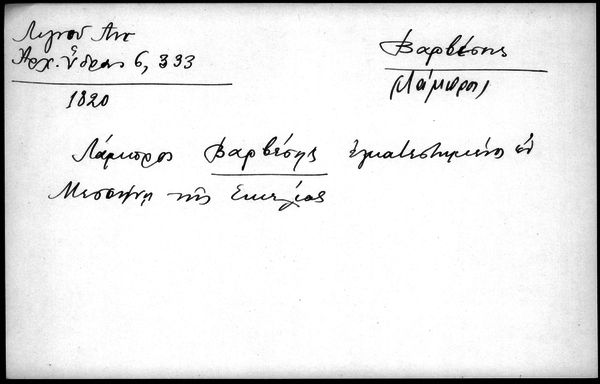 Λιγνού Αντ
Αρχ. Ύδρας 6, 333
1820
Βαρβέσης
(Λάμπρος)
Λάμπρος Βαρβέσης εγκατεστημένος εν
Μεσσήνη της Σικελίας